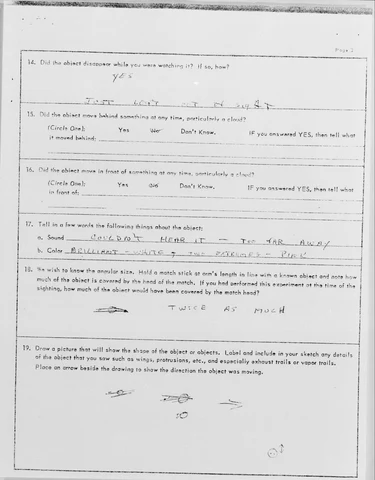 Page 3
14. Did the object disappear while you were watching it? If so, how?
YES
JUST WENT OUT OF SIGHT
15. Did the object move behind something at any time, particularly a cloud?
(Circle One): Yes No Don't Know. IF you answered YES, then tell what
it moved behind:
16. Did the object move in front of something at any time, particularly a cloud?
(Circle One): Yes No Don't Know. IF you answered YES, then tell what
in front of:
17. Tell in a few words the following things about the object:
a. Sound COULDN'T HEAR IT - TOO FAR AWAY
b. Color BRILLIANT - WHITE, PINK
18. We wish to know the angular size. Hold a match stick at arm's length in line with a known object and note how
much of the object is covered by the head of the match. If you had performed this experiment at the time of the
sighting, how much of the object would have been covered by the match head?
TWICE AS MUCH
19. Draw a picture that will show the shape of the object or objects. Label and include in your sketch any details
of the object that you saw such as wings, protrusions, etc., and especially exhaust trails or vapor trails.
Place an arrow beside the drawing to show the direction the object was moving.